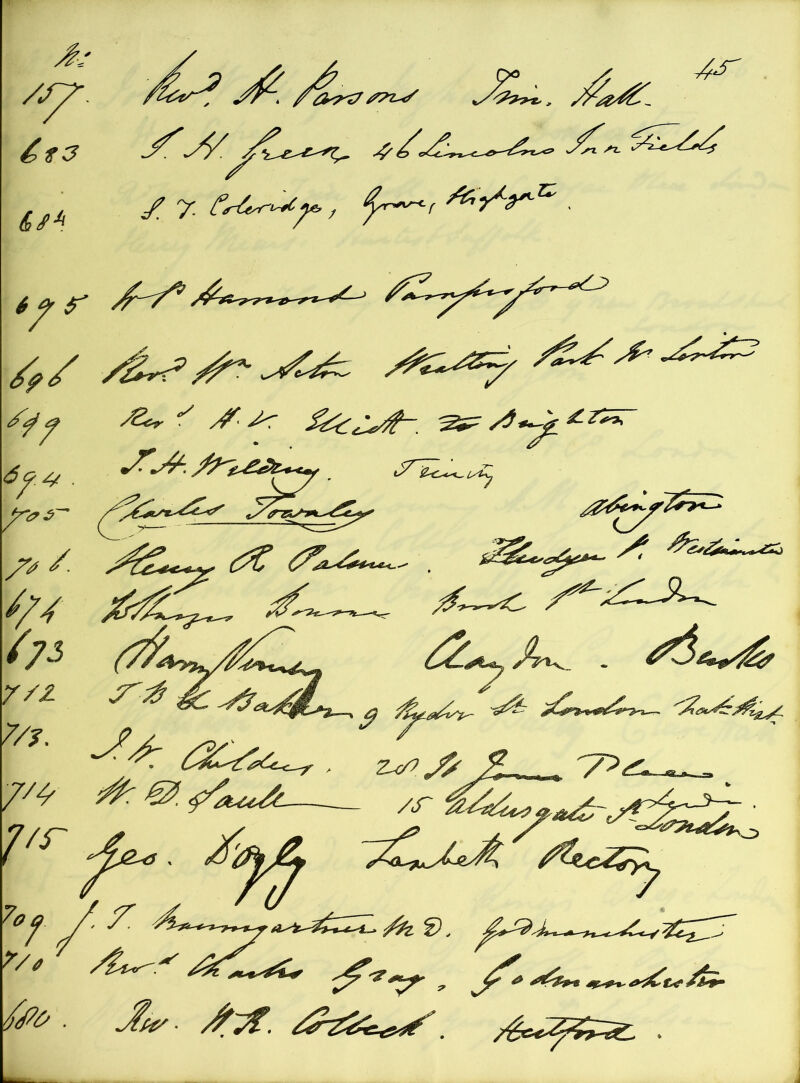 No. 45
157. Revd. H. Parsons Trin. Hall.
683 J. H. Green 46 Lincolns Inn Fields
684 S. T. Coleridge, Grove, Highgate.
695 W P Hamond Pampisford
696 Revd. Wm. Acton Wratting Park Nr. Linton
699 Revd. H. V. Elliott. Brighton
694. J. H. Wilding. Trinity
705 Charles Townley Abington
706. Henry R Palmer. St. Westminster
674 W Sturges Bourne Brook St London
673 Harry Verney Claydon. Bucks
712 T B Baker 9 Ryder St. London Nat. Hist.
713. J. W. Childers. 28 St James Place.
London.
714 W. D. Saull 15 Aldersgate St. London
715 Geo. D'Oyly Lambeth Rectory
709 J. T. Baumgartner M D. Godmanchester
710 Revd. Charles Gray, Godmanchester
680. Rev. W. R. Colbeck. Hertford.